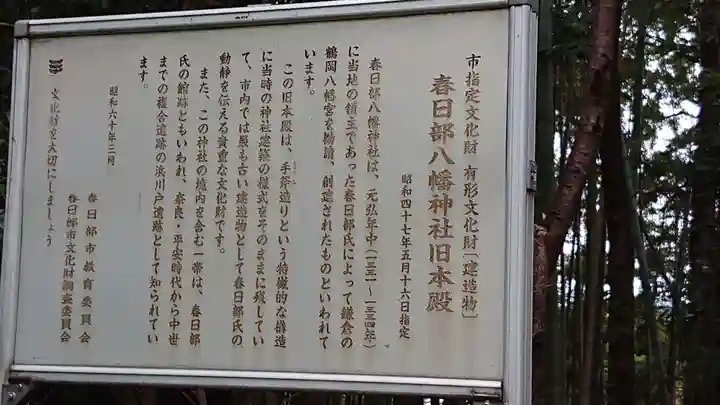 市指定文化財 有形文化財「建造物」
春日部八幡神社旧本殿
昭和四十七年五月十六日指定
春日部八幡神社は、元弘年中(一三三一〜一三三四年)
に当地の領主であった春日部氏によって鎌倉の
鶴岡八幡宮を勧請、創建されたものといわれて
います。
この旧本殿は、手斧造りという特徴的な構造
に当時の神社建築の様式をそのままに残してい
て、市内では最も古い建造物として春日部氏の
動静を伝える貴重な文化財です。
また、この神社の境内を含む一帯は、春日部
氏の館跡ともいわれ、奈良・平安時代から中世
までの複合遺跡の浜川戸遺跡として知られてい
ます。
昭和六十年三月
春日部市教育委員会
春日部市文化財調査委員会
文化財を大切にしましょう